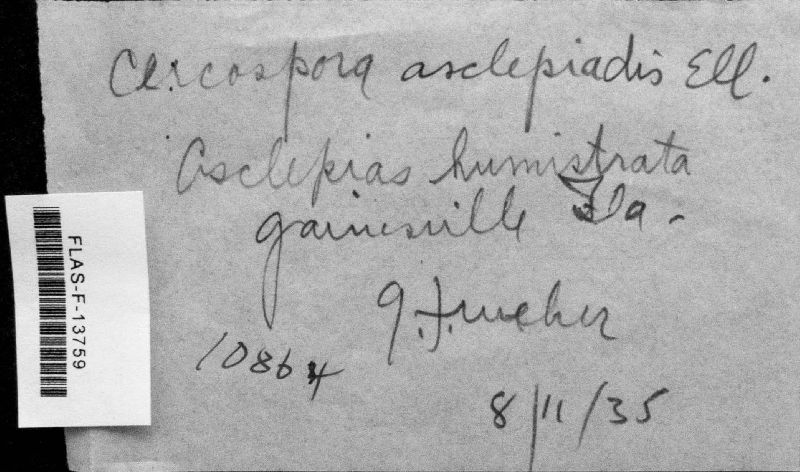 Cercospora asclepiadis Ell.
Asclepias humistrata
Gainesville Fla.
FLAS-F-13759
10864
8/11/35